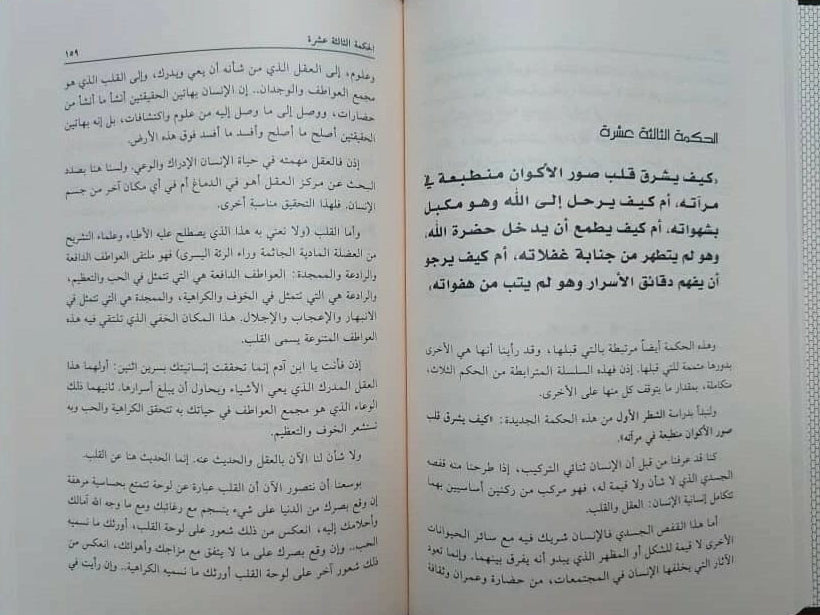 الحكمة الثالثة عشرة
«كيف يشرق قلب صور الأكوان منطبعة في
مرآته، أم كيف يرحل إلى الله وهو مكبل
بشهواته، أم كيف يطمع أن يدخل حضرة الله،
وهو لم يتطهر من جنابة غفلاته، أم كيف يرجو
أن يفهم دقائق الأسرار وهو لم يتب من هفواته»
وهذه الحكمة أيضاً مرتبطة بالتي قبلها، وقد رأينا أنها هي الأخرى
بدورها متممة للتي قبلها. إذن فهذه السلسلة المترابطة من الحكم الثلاث،
متكاملة، بمقدار ما يتوقف كل منها على الأخرى.
ولنبدأ بدراسة الشطر الأول من هذه الحكمة الجديدة: «كيف يشرق قلب
صور الأكوان منطبعة في مرآته»
كنا قد عرفنا من قبل أن الإنسان ثنائي التركيب، إذا طرحنا منه قفصه
الجسدي الذي لا شأن ولا قيمة له، فهو مركب من ركنين أساسيين بهما
تتكامل إنسانية الإنسان: العقل والقلب.
أما هذا القفص الجسدي فالإنسان شريك فيه مع سائر الحيوانات
الأخرى لا قيمة للشكل أو المظهر الذي يبدو أنه يفرق بينهما. وإنما تعود
الآثار التي يخلفها الإنسان في المجتمعات، من حضارة وعمران وثقافة
الحكمة الثالثة عشرة
١٥٩
وعلوم، إلى العقل الذي من شأنه أن يعي ويدرك، وإلى القلب الذي هو
مجمع العواطف والوجدان.. إن الإنسان بهاتين الحقيقتين أنشأ ما أنشأ من
حضارات، ووصل إلى ما وصل إليه من علوم واكتشافات، بل إنه بهاتين
الحقيقتين أصلح ما أصلح وأفسد ما أفسد فوق هذه الأرض.
إذن فالعقل مهمته في حياة الإنسان الإدراك والوعي. ولسنا هنا بصدد
البحث عن مركز العقل أهو في الدماغ أم في أي مكان آخر من جسم
الإنسان. فلهذا التحقيق مناسبة أخرى.
وأما القلب (ولا نعني به هذا الذي يصطلح عليه الأطباء وعلماء التشريح
من العضلة المادية الجاثمة وراء الرئة اليسرى) فهو ملتقى العواطف الدافعة
والرادعة والممجدة: العواطف الدافعة هي التي تتمثل في الحب والتعظيم،
والرادعة هي التي تتمثل في الخوف والكراهية، والممجدة هي التي تتمثل في
الانبهار والإعجاب والإجلال. هذا المكان الخفي الذي تلتقي فيه هذه
العواطف المتنوعة يسمى القلب.
إذن فأنت يا ابن آدم إنما تحققت إنسانيتك بسرين اثنين: أولهما هذا
العقل المدرك الذي يعي الأشياء ويحاول أن يبلغ أسرارها. ثانيهما ذلك
الوعاء الذي هو مجمع العواطف في حياتك به تتحقق الكراهية والحب وبه
تستشعر الخوف والتعظيم.
ولا شأن لنا الآن بالعقل والحديث عنه. إنما الحديث هنا عن القلب.
بوسعنا أن نتصور الآن أن القلب عبارة عن لوحة تتمتع بحساسية مرهفة
إن وقع بصرك من الدنيا على شيء ينسجم مع رغائبك ومع ما وجه الله آمالك
وأحلامك إليه، انعكس من ذلك شعور على لوحة القلب، أورثك ما نسميه
الحب.. وإن وقع بصرك على ما لا يتفق مع مزاجك وأهوائك، انعكس من
ذلك شعور آخر على لوحة القلب أورثك ما نسميه الكراهية.. وإن رأيت في